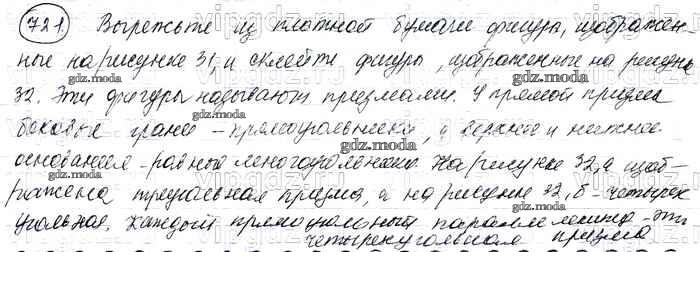 721. Вырежьте из плотной бумаги фигуры, изображен-
ные на рисунке 31, и склейте фигуры, изображенные на рисунке
32. Эти фигуры называют призмами. У прямой призмы
боковые грани - прямоугольники, а верхнее и нижнее
основания - равные многоугольники. На рисунке 32, а изоб-
ражена треугольная призма, а на рисунке 32, б - четырех
угольная. Каждый прямоугольный параллелепипед - это
четырехугольная призма
gdz.moda
gdz.moda
gdz.moda
gdz.moda
gdz.moda
gdz.moda
gdz.moda
gdz.moda